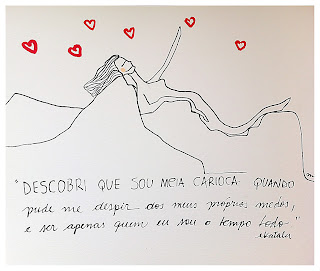 "DESCOBRI QUE SOU MEIA CARIOCA QUANDO
pude me despir dos meus próprios medos,
e ser apenas quem eu sou o tempo todo"